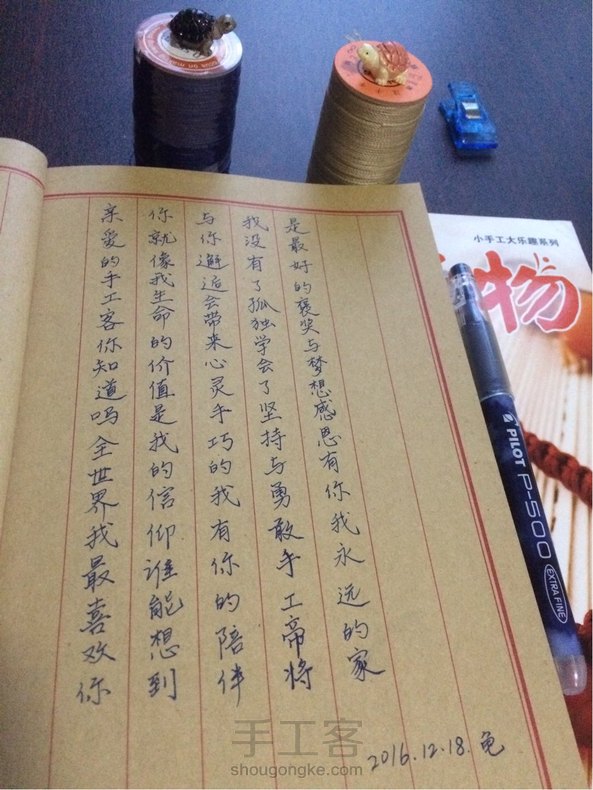 亲爱的手工客你知道吗全世界我最喜欢你
你就像我生命的价值是我的信仰谁能想到
与你邂逅会带来心灵手巧的我有你的陪伴
我没有了孤独学会了坚持与勇敢手工帝将
是最好的褒奖与梦想感恩有你我永远的家
2016.12.18.龟
小手工大乐趣系列
物
PILOT P-500
EXTRA FINE
手工客
shougongke.com